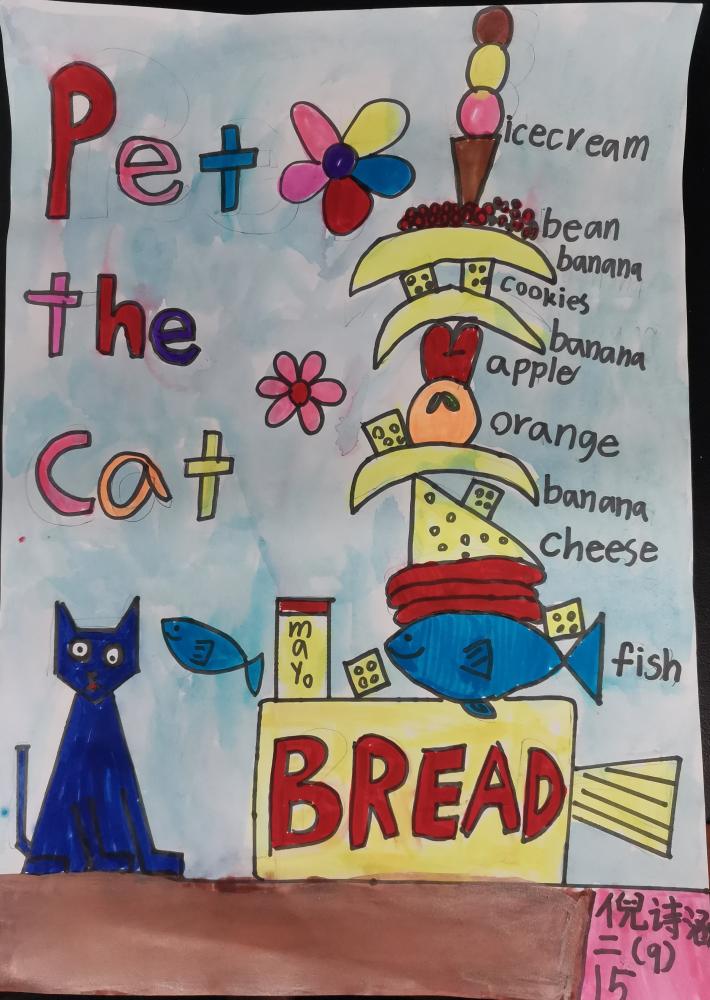 Pet
the
cat
icecream
bean
banana
cookies
banana
apple
orange
banana
cheese
fish
mayo
BREAD
倪诗涵
二(9)
15